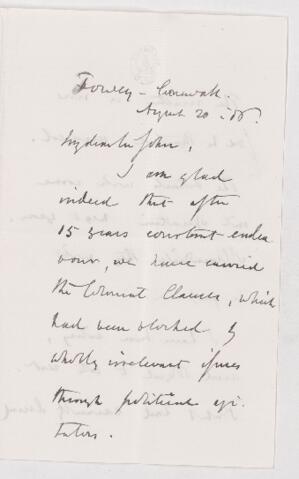 Fowey - Cornwall.
August 20 -
My dear Sir John,
I am glad
indeed that after
15 years constant endea
vour, we have carried
the Clauses, which
had been blocked by
wholly irrelevant issues
through political agi-
tators.